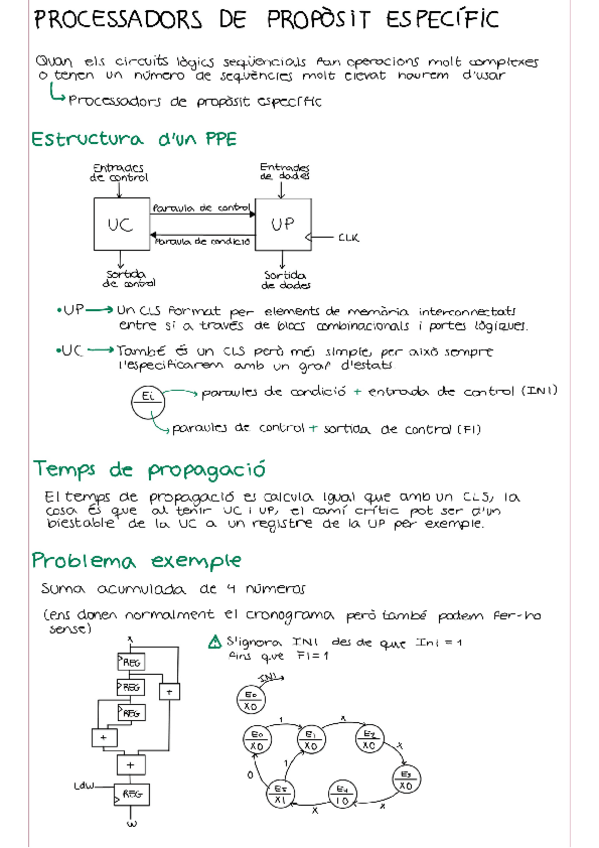 PROCESSADORS DE PROPÒSIT ESPECÍFIC
Quan els circuits lògics seqüencials fan operacions molt complexes
o tenen un número de seqüències molt elevat haurem d'usar
Processadors de propòsit específic
Estructura d'un PPE
Entrades de control
Entrades de dades
UC
Paraula de control
Paraula de condició
UP
CLK
Sortida de control
Sortida de dades
•UP → Un CLS format per elements de memòria interconnectats
entre si a través de blocs combinacionals i portes lògiques.
•UC → També és un CLS però més simple, per això sempre
l'especificarem amb un graf d'estats
Ei
paraules de condició + entrada de control (INI)
paraules de control + sortida de control (FI)
Temps de propagació
El temps de propagació es calcula igual que amb un CLS, la
cosa és que al tenir UC i UP, el camí crític pot ser d'un
biestable de la UC a un registre de la UP per exemple.
Problema exemple
Suma acumulada de 4 números
(ens donen normalment el cronograma però també podem fer-ho
sense)
S'ignora INI des de que Ini = 1
fins que Fi=1
X
REG
REG
REG
+
+
+
Ldw
REG
W
INI
E0
X0
E0
X0
1
E1
X0
X
E2
X0
X
E3
X0
X
E4
10
X
E5
X1
0
1